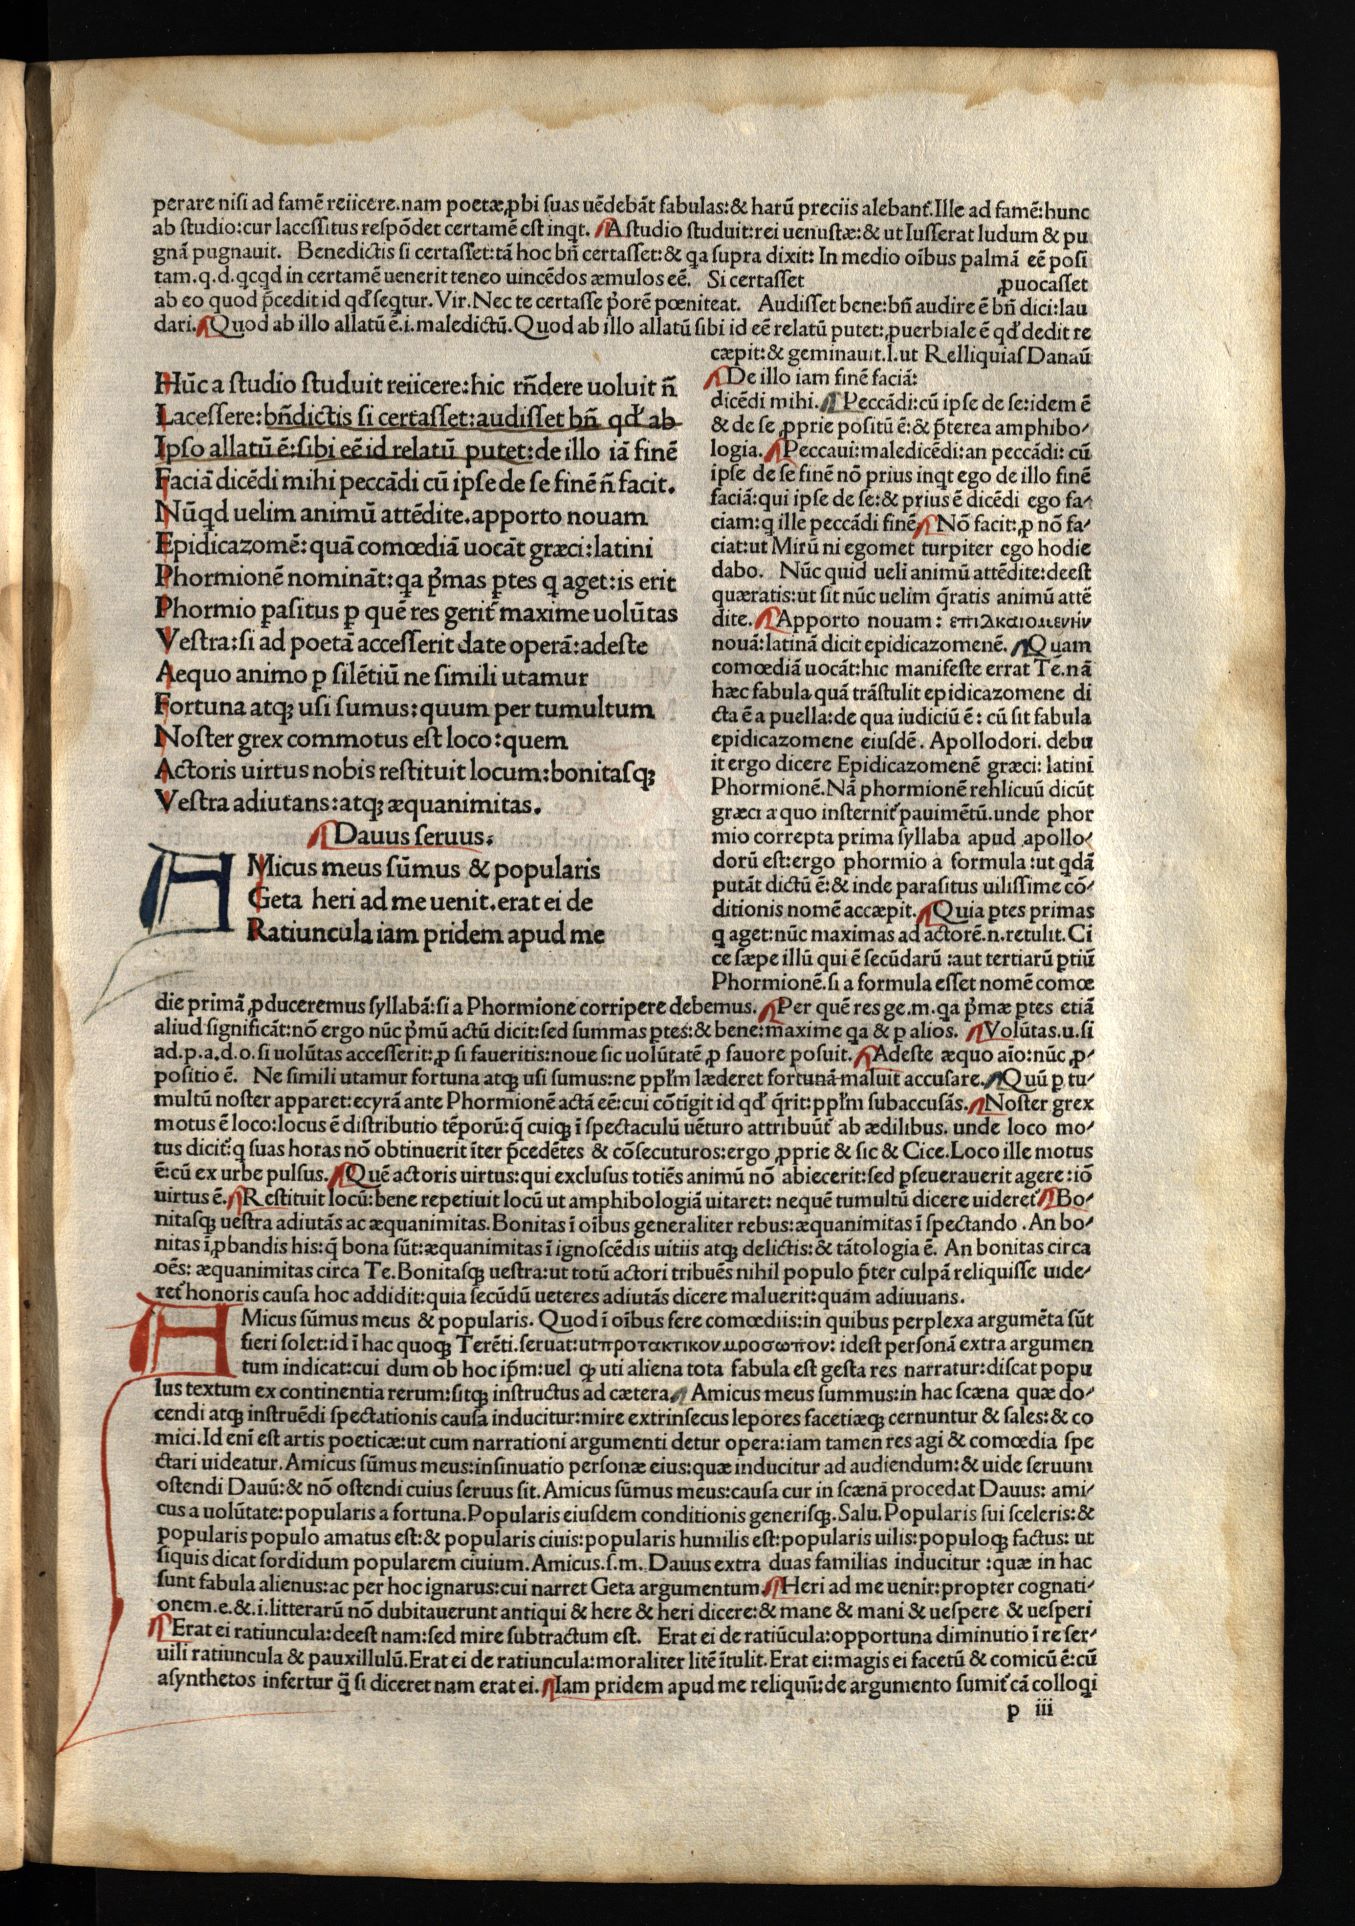 perare nisi ad famē reiicere.nam poetæ ꝓbi suas uēdebāt fabulas:& harū preciis alebanť.Ille ad famē:hunc
ab studio:cur lacessitus respōdet certamē est inqt. A studio studuit:rei uenustæ:& ut Iusserat ludum & pu
gnā pugnauit. Benedictis si certasset:tā hoc bn̄ certasset:& qa supra dixit: In medio oībus palmā eē posi
tam.q.d.qcqd in certamē uenerit teneo uincēdos æmulos eē. Si certasset ꝓuocasset
ab eo quod p̄cedit id qd̓ seqtur.Vir.Nec te certasse p̓orē pœniteat. Audisset bene:bn̄ audire ē bn̄ dici:lau
dari. Quod ab illo allatū ē.i.maledictū.Quod ab illo allatū sibi id eē relatū putet:ꝓuerbiale ē qd̓ dedit re
cæpit:& geminauit.l.ut Relliquias Danaū
Hūc a studio studuit reiicere:hic rn̄dere uoluit n̄
Lacessere:bn̄dictis si certasset:audisset bn̄ qd̓ ab
Ipso allatū ē:sibi eē id relatū putet:de illo iā finē
Faciā dicēdi mihi peccādi cū ipse de se finē n̄ facit.
Nūqd uelim animū attēdite.apporto nouam
Epidicazomē:quā comœdiā uocāt græci:latini
Phormionē nomināt:qa p̓mas ꝑtes q aget:is erit
Phormio ꝑasitus ꝑ quē res geriť maxime uolūtas
Vestra:si ad poetā accesserit date operā:adeste
Aequo animo ꝑ silētiū ne simili utamur
Fortuna atqꝫ usi sumus:quum per tumultum
Noster grex commotus est loco:quem
Actoris uirtus nobis restituit locum:bonitasqꝫ
Vestra adiutans:atqꝫ æquanimitas.
Dauus seruus.
AMicus meus sūmus & popularis
Geta heri ad me uenit.erat ei de
Ratiuncula iam pridem apud me
De illo iam finē faciā:
dicēdi mihi. Peccādi:cū ipse de se:idem ē
& de se ꝓprie positū ē:& p̄terea amphibo-
logia. Peccaui:maledicēdi:an peccādi: cū
ipse de se finē nō prius inqt ego de illo finē
faciā:qui ipse de se:& prius ē dicēdi ego fa-
ciam:q ille peccādi finē Nō facit:ꝓ nō fa-
ciat:ut Mirū ni egomet turpiter ego hodie
dabo. Nūc quid ueli animū attēdite:deest
quæratis:ut sit nūc uelim q̄ratis animū attē
dite. Apporto nouam: επιδκαιομενήν
nouā:latinā dicit epidicazomenē. Quam
comœdiā uocāt:hic manifeste errat Te.nā
hæc fabula quā trāstulit epidicazomene di
cta ē a puella:de qua iudiciū ē: cū sit fabula
epidicazomene eiusdē. Apollodori. debu
it ergo dicere Epidicazomenē græci: latini
Phormionē.Nā phormionē rehlicuū dicūt
græci a quo insterniť pauimētū.unde phor
mio correpta prima syllaba apud apollo-
dorū est:ergo phormio a formula :ut qdā
putāt dictū ē:& inde parasitus uilissime cō-
ditionis nomē accæpit. Quia ꝑtes primas
q aget:nūc maximas ad actorē.n.retulit.Ci
ce sæpe illū qui ē secūdarū :aut tertiarū ꝑtiū
Phormionē.si a formula esset nomē comœ
die primā ꝓduceremus syllabā:si a Phormione corripere debemus. Per quē res ge.m.qa p̓mæ ꝑtes etiā
aliud significāt:nō ergo nūc p̓mū actū dicit:sed summas ꝑtes:& bene:maxime qa & ꝑ alios. Volūtas.u.si
ad.p.a.d.o.si uolūtas accesserit:ꝓ si faueritis:noue sic uolūtatē ꝓ fauore posuit. Adeste æquo aīo:nūc ꝓ-
positio ē. Ne simili utamur fortuna atqꝫ usi sumus:ne ppl̓m læderet fortunā maluit accusare. Quū ꝑ tu-
multū noster apparet:ecyrā ante Phormionē actā eē:cui cōtigit id qd̓ q̄rit:ppl̓m subaccusās. Noster grex
motus ē loco:locus ē distributio tēporū:q̄ cuiqꝫ ī spectaculū uēturo attribuūť ab ædilibus. unde loco mo-
tus diciť:q suas horas nō obtinuerit īter p̄cedētes & cōsecuturos:ergo ꝓprie & sic & Cice.Loco ille motus
ē:cū ex urbe pulsus. Quē actoris uirtus:qui exclusus totiēs animū nō abiecerit:sed ꝑseuerauerit agere:iō
uirtus ē. Restituit locū:bene repetiuit locū ut amphibologiā uitaret: nequē tumultū dicere uidereť Bo-
nitasqꝫ uestra adiutās ac æquanimitas.Bonitas ī oībus generaliter rebus:æquanimitas ī spectando .An bo-
nitas ī ꝓbandis his:q̄ bona sūt:æquanimitas ī ignoscēdis uitiis atqꝫ delictis:& tātologia ē. An bonitas circa
oēs: æquanimitas circa Te.Bonitasqꝫ uestra:ut totū actori tribuēs nihil populo p̄ter culpā reliquisse uide-
reť honoris causa hoc addidit:quia secūdū ueteres adiutās dicere maluerit:quam adiuuans.
AMicus sūmus meus & popularis. Quod ī oībus fere comœdiis:in quibus perplexa argumēta sūt
fieri solet:id ī hac quoqꝫ Terēti.seruat:utπροτακτικον προσωπον: idest personā extra argumen
tum indicat:cui dum ob hoc ip̄m:uel qꝫ uti aliena tota fabula est gesta res narratur:discat popu
lus textum ex continentia rerum:sitqꝫ instructus ad cætera. Amicus meus summus:in hac scæna quæ do-
cendi atqꝫ instruēdi spectationis causa inducitur:mire extrinsecus lepores facetiæqꝫ cernuntur & sales:& co
mici.Id enī est artis poeticæ:ut cum narrationi argumenti detur opera:iam tamen res agi & comœdia spe
ctari uideatur.Amicus sūmus meus:insinuatio personæ eius:quæ inducitur ad audiendum:& uide seruum
ostendi Dauū:& nō ostendi cuius seruus sit.Amicus sūmus meus:causa cur in scænā procedat Dauus: ami-
cus a uolūtate:popularis a fortuna.Popularis eiusdem conditionis generisqꝫ.Salu.Popularis sui sceleris:&
popularis populo amatus est:& popularis ciuis:popularis humilis est:popularis uilis:populoqꝫ factus: ut
siquis dicat sordidum popularem ciuium.Amicus.s.m. Dauus extra duas familias inducitur :quæ in hac
sunt fabula alienus:ac per hoc ignarus:cui narret Geta argumentum Heri ad me uenir:propter cognati-
onem.e.&.i.litterarū nō dubitauerunt antiqui & here & heri dicere:& mane & mani & uespere & uesperi
Erat ei ratiuncula:deest nam:sed mire subtractum est. Erat ei de ratiūcula:opportuna diminutio ī re ser-
uili ratiuncula & pauxillulū.Erat ei de ratiuncula:moraliter litē ītulit.Erat ei:magis ei facetū & comicū ē:cū
asynthetos infertur q̄ si diceret nam erat ei. Iam pridem apud me reliquū:de argumento sumiť cā colloqi
p iii